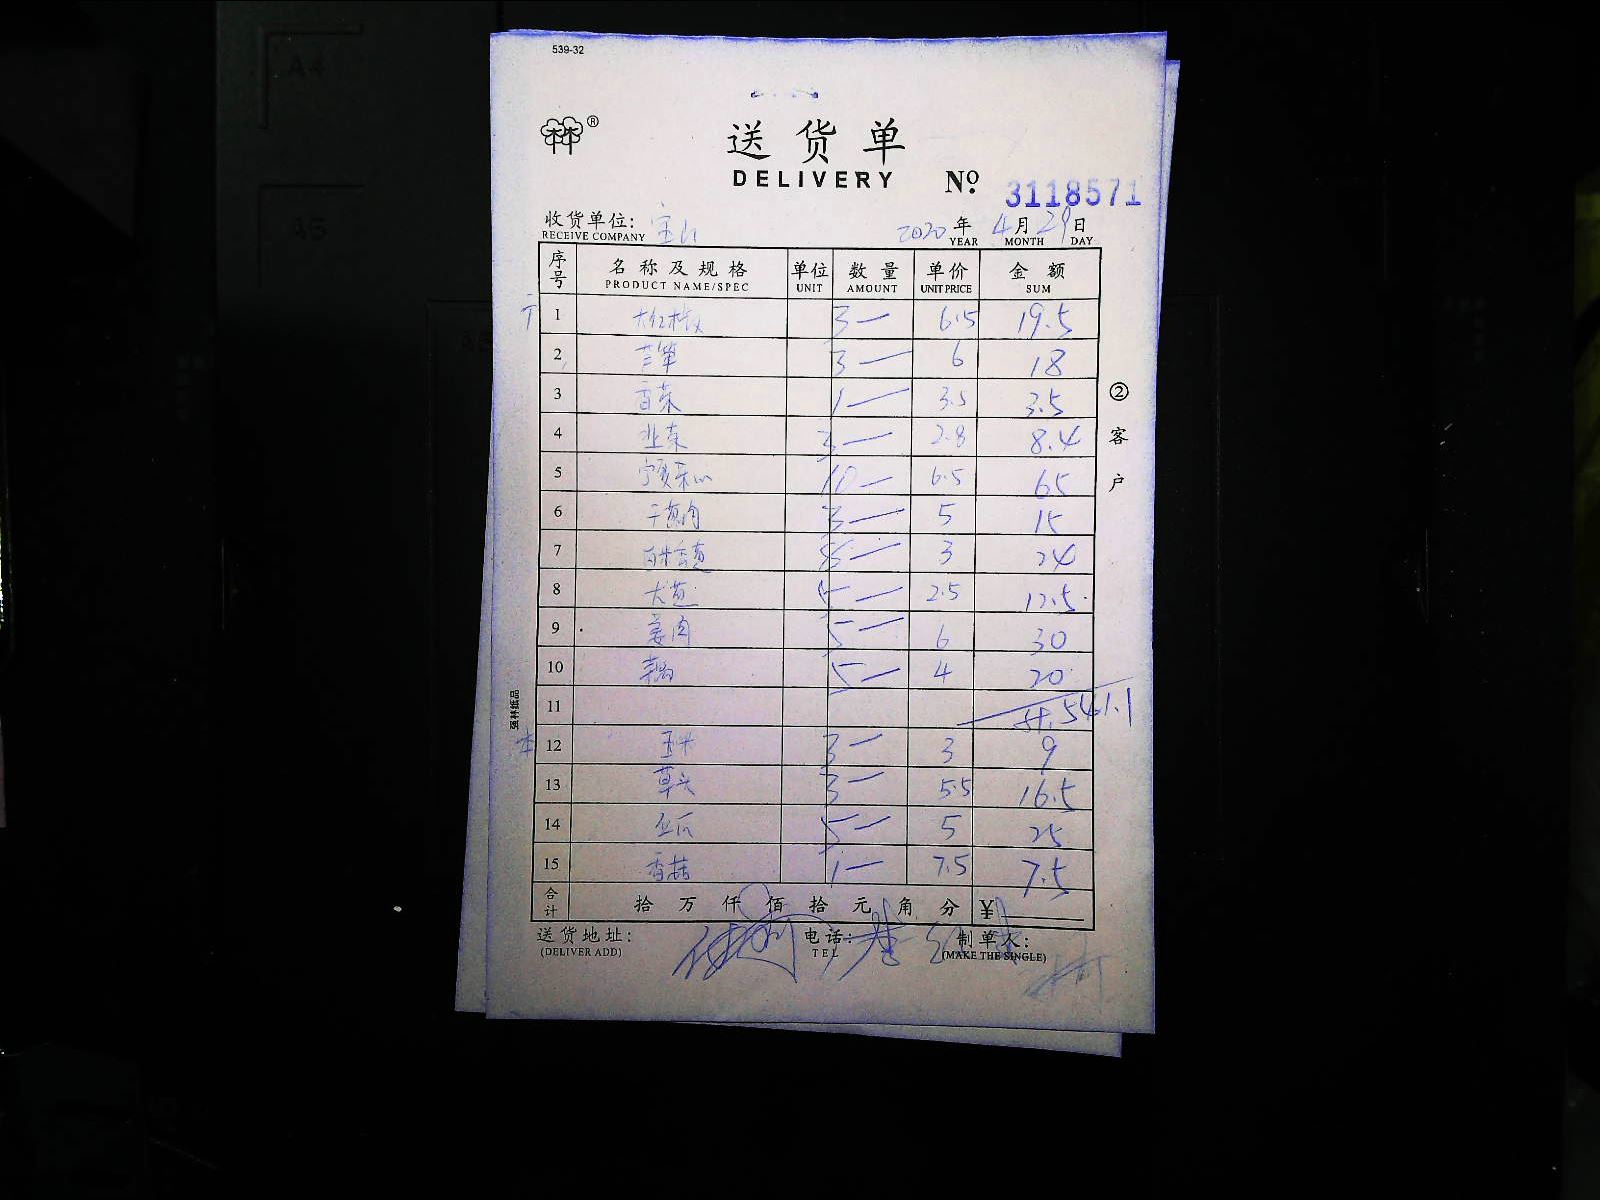 539-32
送货单
DELIVERY
No. 3118571
收货单位: 宝山 2020年 4月 29日
RECEIVE COMPANY YEAR MONTH DAY
序号 名称及规格 单位 数量 单价 金额
PRODUCT NAME/SPEC UNIT AMOUNT UNIT PRICE SUM
1 大红椒 3— 6.5 19.5
2 3— 6 18
3 香菜 1— 3.5 3.5
4 韭菜 3— 2.8 8.4
5 宁夏菜心 10— 6.5 65
6 干葱肉 3— 5 15
7 — 3 24
8 大葱 5— 2.5 12.5
9 姜肉 5— 6 30
10 5— 4 20
11 541.1
本 12 玉米 3— 3 9
13 草头 3— 5.5 16.5
14 5— 5 25
15 香菇 1— 7.5 7.5
合计 拾 万 仟 佰 拾 元 角 分 ¥
送货地址: 电话: 制单人:
(DELIVER ADD) TEL (MAKE THE SINGLE)
②客户
强林纸品
A4
A5